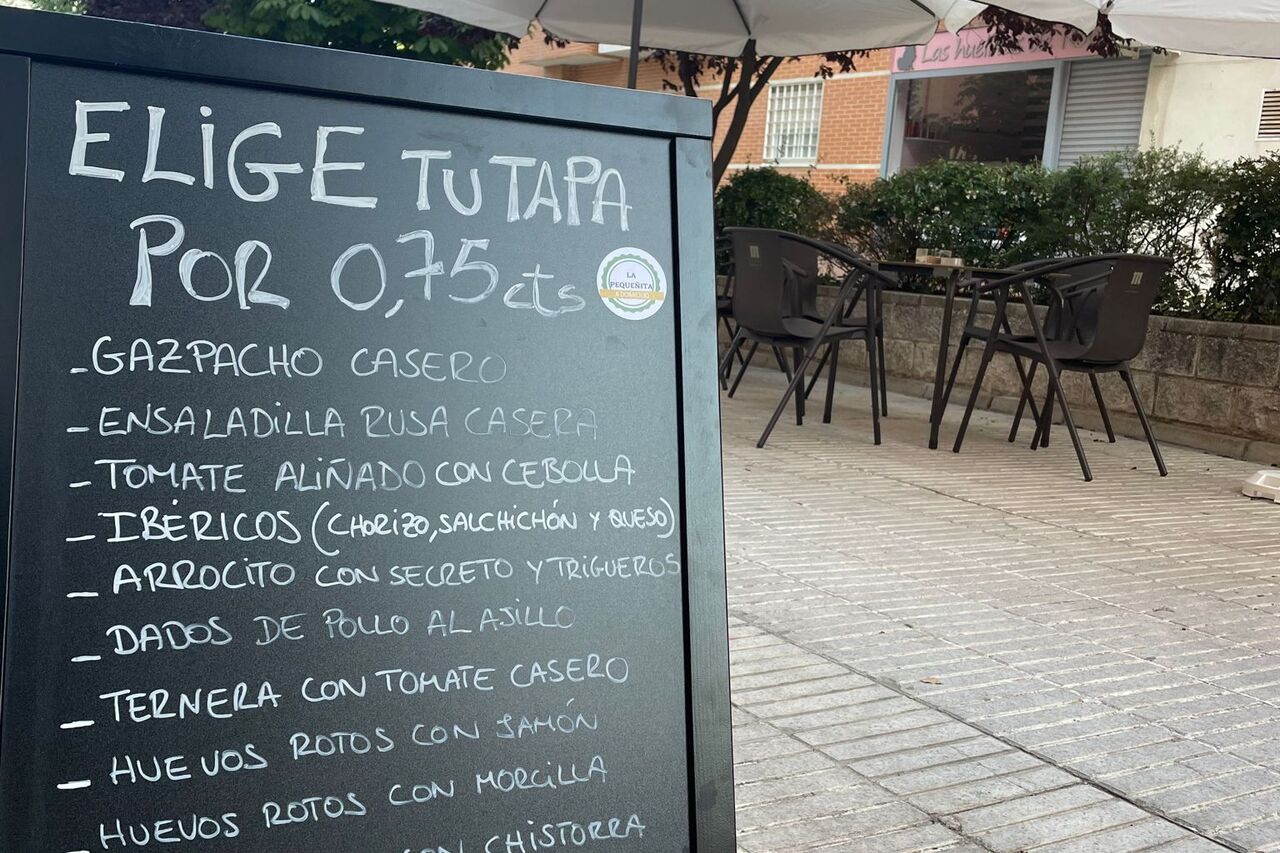 ELIGE TU TAPA
POR 0,75 cts
LA
PEQUEÑITA
- GAZPACHO CASERO
- ENSALADILLA RUSA CASERA
- TOMATE ALIÑADO CON CEBOLLA
- IBÉRICOS (CHORIZO, SALCHICHÓN Y QUESO)
- ARROCITO CON SECRETO Y TRIGUEROS
- DADOS DE POLLO AL AJILLO
- TERNERA CON TOMATE CASERO
- HUEVOS ROTOS CON JAMÓN
- HUEVOS ROTOS CON MORCILLA
CON CHISTORRA
Las